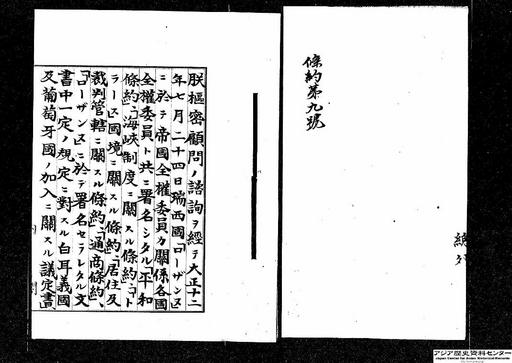 條約第九號
朕樞密顧問ノ諮詢ヲ經テ大正十二
年七月二十四日瑞西國「ローザンヌ」
ニ於テ帝國全權委員カ關係各國
全權委員ト共ニ署名シタル「平和
條約」、「海峽制度ニ關スル條約」、「ト
ラース國境ニ關スル條約」、「居住及
裁判管轄ニ關スル條約」、「通商條約」、
「ローザンヌ」ニ於テ署名セラレタル文
書中一定ノ規定ニ對スル白耳義國
及葡萄牙國ノ加入ニ關スル議定書」、
アジア歴史資料センター
Japan Center for Asian Historical Records